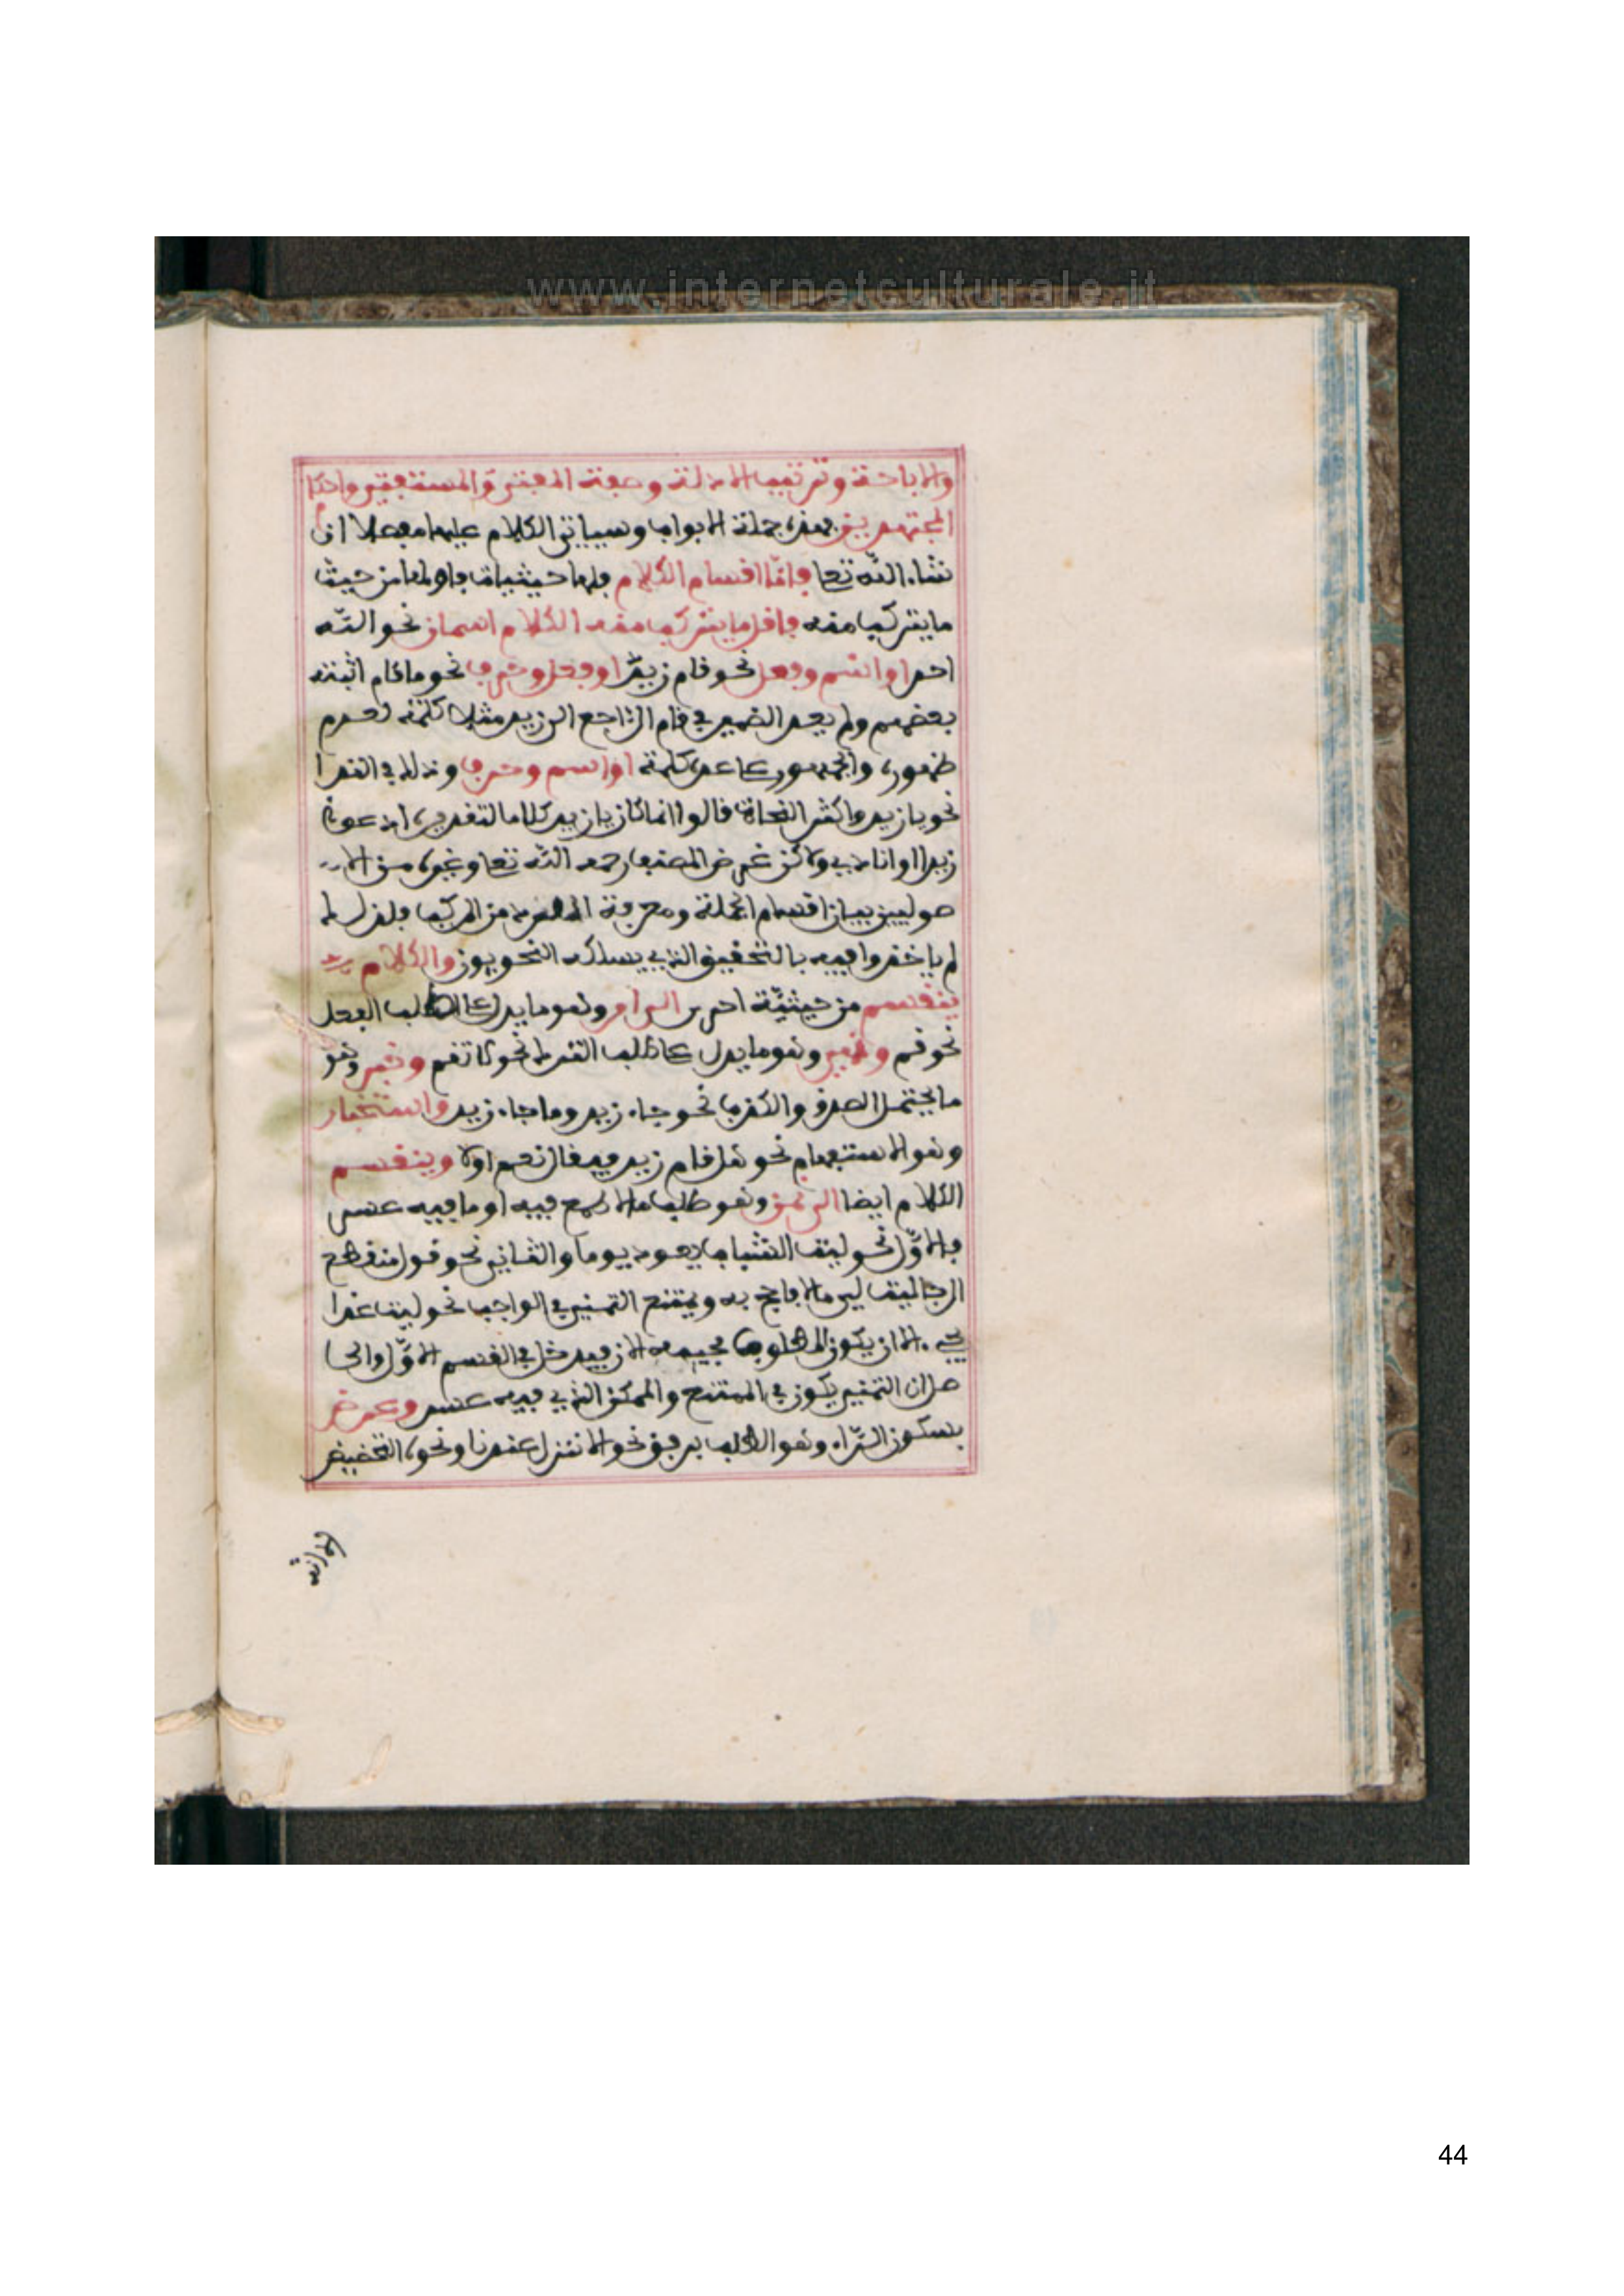 www.internetculturale.it
والاباحة وترتيب الادلة وصفة المفتي والمستفتي واحكام
المجتهدين فهذه جملة الابواب وسياتي الكلام عليها مفصلا ان
شاء الله تعا فاما اقسام الكلام فلها حيثيات فاولها من حيث
ما يتركب منه فاقل ما يتركب منه الكلام اسمان نحو الله
احد او اسم وفعل نحو قام زيد او فعل وحرف نحو ما قام اثبته
بعضهم ولم يعد الضمير في قام الراجع الى زيد مثلا كلمة لعدم
ظهوره والجمهور على عده كلمة او اسم وحرف وذلك في الندا
نحو يا زيد واكثر النحاة قالوا انما كان يا زيد كلاما لتقديره ادعو
زيدا او انادي ولاكن غرض المصنف رحمه الله تعا وغيره من الا
صوليين بيان اقسام الجملة ومعرفة المفرد من المركب فلذلك
لم ياخذوا فيه بالتحقيق الذي يسلكه النحويون والكلام
ينقسم من حيثية اخرى الى امر وهو ما يدل على طلب الفعل
نحو قم ونهي وهو ما يدل على طلب الترك نحو لا تقم وخبر وهو
ما يحتمل الصدق والكذب نحو جاء زيد وما جاء زيد واستخبار
وهو الاستفهام نحو هل قام زيد فيقال نعم او لا وينقسم
الكلام ايضا الى تمن وهو طلب ما لا طمع فيه او ما فيه عسر
فالاول نحو ليت الشباب يعود يوما والثاني نحو قول منقطع
الرجا ليت لي مالا فاحج به ويمتنع التمني في الواجب نحو ليت غدا
يجيء الا ان يكون المطلوب مجيه الان فيدخل في القسم الاول والحا
صل ان التمني يكون في الممتنع والممكن الذي فيه عسر وعرض
بسكون الراء وهو الطلب برفق نحو الا تنزل عندنا ونحوه التخضيض
44